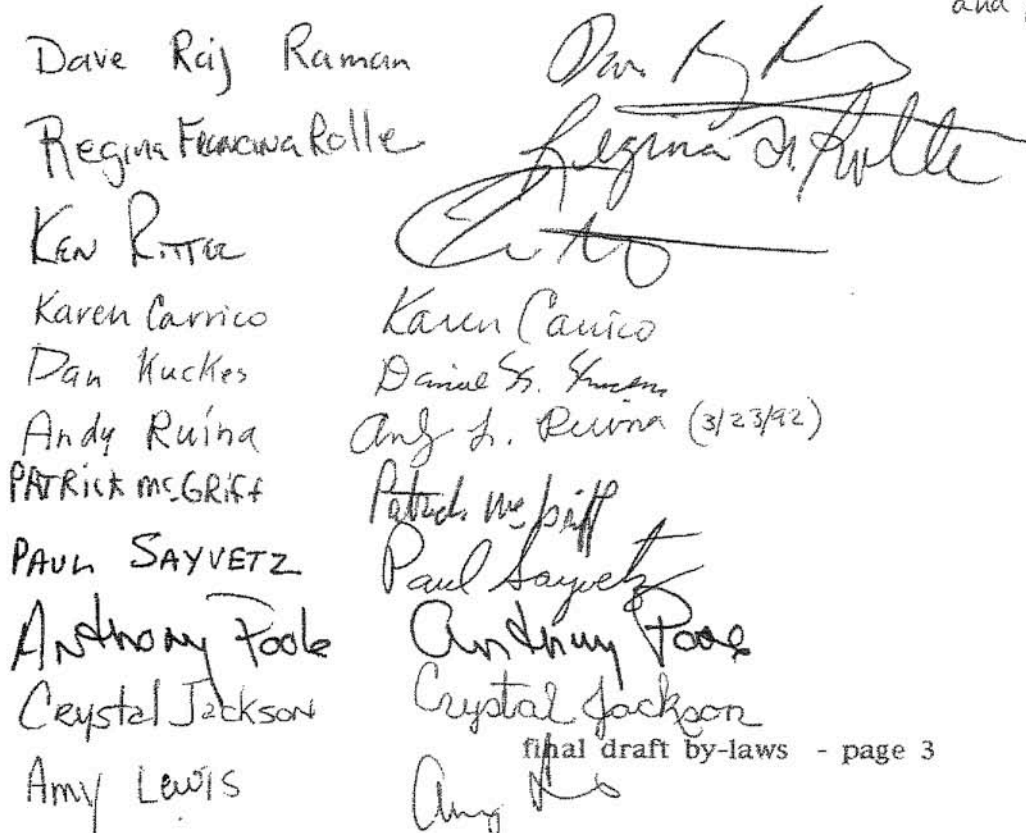 and
Dave Raj Raman
Regina Francina Rolle Regina F. Rolle
KEN RITTER
Karen Carrico Karen Carrico
Dan Kuckes
Andy Ruina Andy L. Ruina (3/23/92)
PATRICK McGRiff Patrick McGriff
PAUL SAYVETZ Paul Sayvetz
Anthony Poole Anthony Poole
Crystal Jackson Crystal Jackson
final draft by-laws - page 3
Amy Lewis Amy